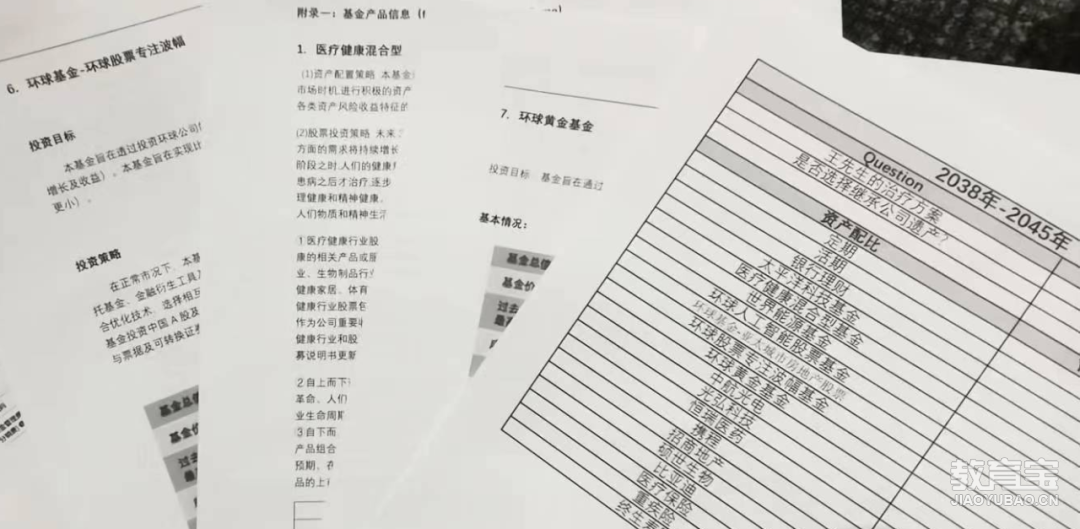 6. 环球基金-环球股票专注波幅
投资目标
本基金旨在透过投资环球公司
增长及收益)。本基金旨在实现比
更小)。
投资策略
在正常市况下,本基
托基金、金融衍生工具及
合优化技术,选择相互
基金投资中国A股及
与票据及可转换证券
基金总值
基金价
过去
附录一:基金产品信息(
1. 医疗健康混合型
(1)资产配置策略 本基金
市场时机,进行积极的资产
各类资产风险收益特征的
(2)股票投资策略 未来
方面的需求将持续增长
阶段之时,人们的健康
患病之后才治疗,逐步
理健康和精神健康。
人们物质和精神生活
①医疗健康行业股
康的相关产品或服
业、生物制品行业
健康家居、体育
健康行业股票包
作为公司重要
健康行业和股
募说明书更新
2自上而下
革命、人们
业生命周期
3自下而
产品组合
预期、在
品的上
7. 环球黄金基金
投资目标 基金旨在通过
基本情况:
基金总值
基金价
过去
最
Question 2038年-2045年
王先生的治疗方案
是否选择继承公司遗产?
资产配比
定期
活期
银行理财
太平洋科技基金
医疗健康混合型基金
世界能源基金
环球人工智能股票基金
环球基金-亚太城市房地产股票
环球股票专注波幅基金
环球黄金基金
中航光电
光弘科技
恒瑞医药
携程
招商地产
硕世生物
比亚迪
医疗保险
重疾险
终生寿
教育宝
JIAOYUBAO.CN